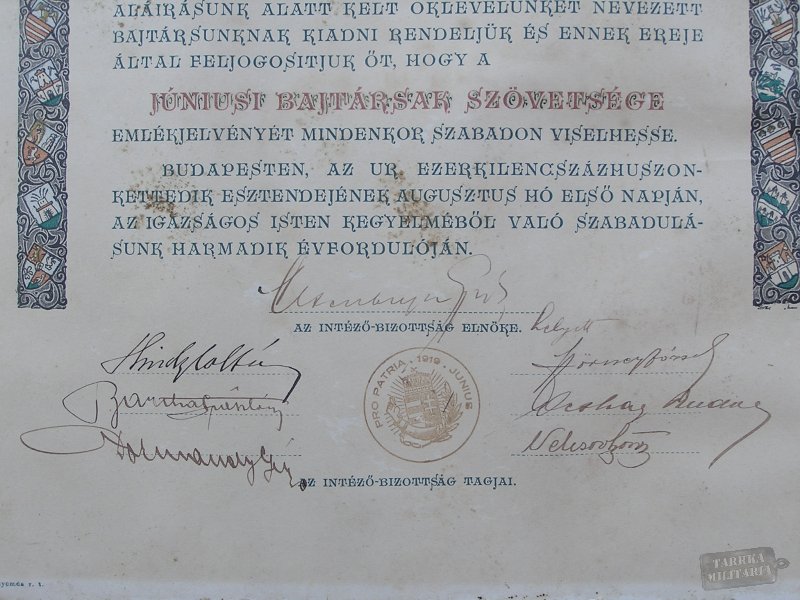 ALÁIRÁSUNK ALATT KELT OKLEVELÜNKET NEVEZETT
BAJTÁRSUNKNAK KIADNI RENDELJÜK ÉS ENNEK EREJE
ÁLTAL FELJOGOSITJUK ŐT, HOGY A
JÚNIUSI BAJTÁRSAK SZÖVETSÉGE
EMLÉKJELVÉNYÉT MINDENKOR SZABADON VISELHESSE.
BUDAPESTEN, AZ UR EZERKILENCSZÁZHUSZON-
KETTEDIK ESZTENDEJÉNEK AUGUSZTUS HÓ ELSŐ NAPJÁN,
AZ IGAZSÁGOS ISTEN KEGYELMÉBŐL VALÓ SZABADULÁ-
SUNK HARMADIK ÉVFORDULÓJÁN.
AZ INTÉZŐ-BIZOTTSÁG ELNÖKE. helyett
PRO PATRIA · 1919 · JUNIUS
AZ INTÉZŐ-BIZOTTSÁG TAGJAI.
TARRKA
MILITARIA